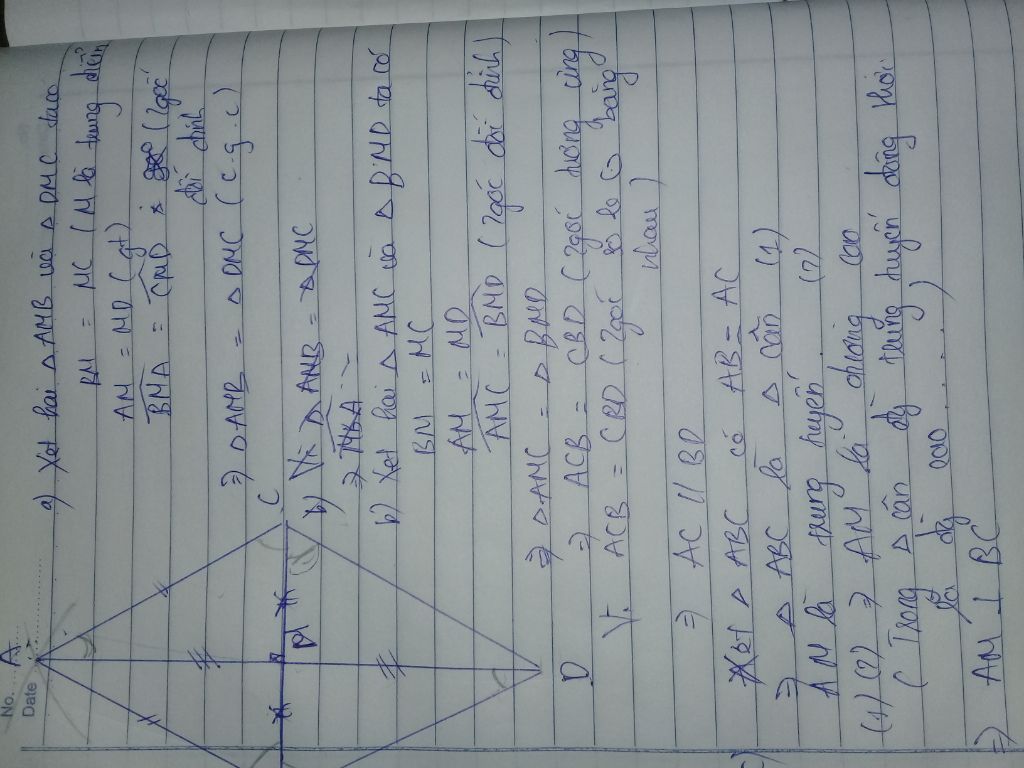 No.
Date
A
C
M
D
a) Xét hai Δ AMB và Δ DMC ta có
BM = MC (M là trung điểm
AM = MD (gt)
BMA = CMD (2 góc
đối đỉnh
⇒ Δ AMB = Δ DMC (c.g.c)
b) Vì Δ AMB = Δ DMC
⇒ MBA
b) Xét hai Δ AMC và Δ BMD ta có
BM = MC
AM = MD
AMC = BMD (2 góc đối đỉnh)
⇒ Δ AMC = Δ BMD
⇒ ACB = CBD (2 góc tương ứng)
V. ACB = CBD (2 góc so le bằng
nhau)
⇒ AC // BD
c) Xét Δ ABC có AB = AC
⇒ Δ ABC là Δ cân (1)
AM là trung tuyến (2)
(1) (2) ⇒ AM là đường cao
(Trong Δ cân đg trung tuyến đồng thời
là đg cao ........)
⇒ AM ⊥ BC